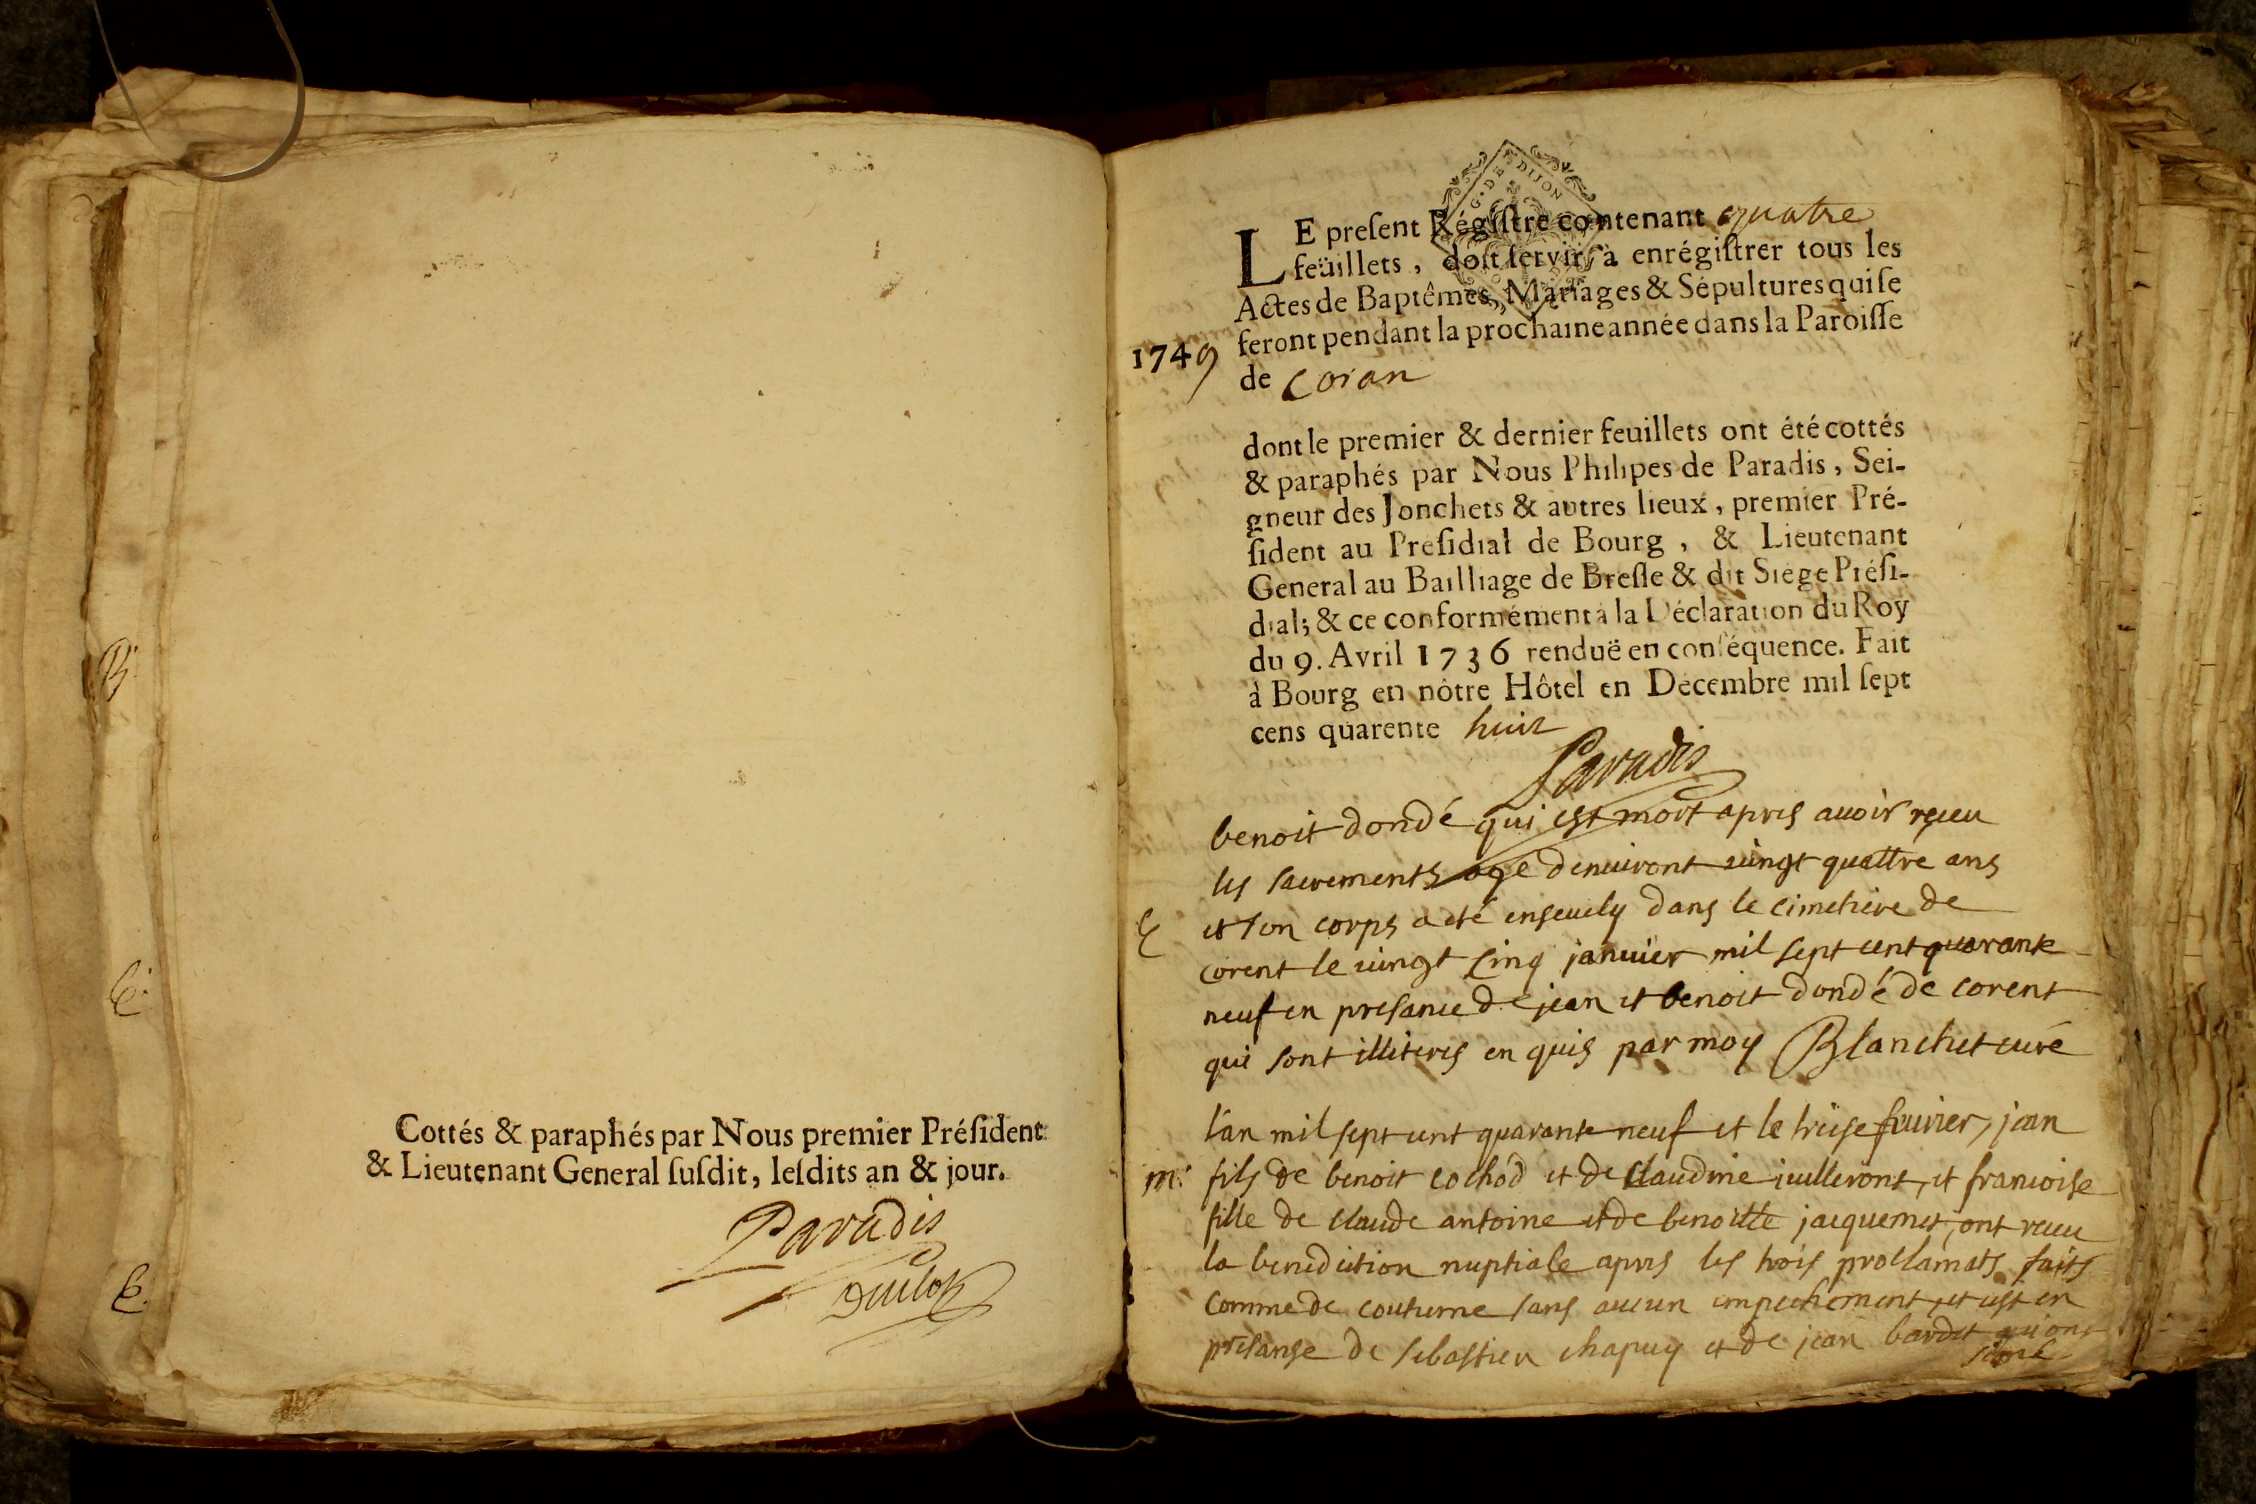 B.
E.
E.
Cottés & paraphés par Nous premier Préſident
& Lieutenant General ſuſdit, leſdits an & jour.
Paradis
G. DE DIJON
LE preſent Régiſtre contenant quatre
feüillets, doit ſervir à enrégiſtrer tous les
Actes de Baptêmes, Mariages & Sépultures qui ſe
feront pendant la prochaine année dans la Paroiſſe
1749
de Coran
dont le premier & dernier feuillets ont été cottés
& paraphés par Nous Philipes de Paradis, Sei-
gneur des Jonchets & autres lieux, premier Pré-
ſident au Preſidial de Bourg, & Lieutenant
General au Bailliage de Breſſe & dit Siége Préſi-
dial; & ce conformément à la Déclaration du Roy
du 9. Avril 1736 renduë en conſéquence. Fait
à Bourg en nôtre Hôtel en Décembre mil ſept
cens quarente huit
Paradis
benoit dondé qui est mort apres auoir receu
les sacrements agé denuiront vingt quattre ans
E et son corps a eté enseuely dans le cimetiere de
corent le vingt cinq januier mil sept cent quarante
neuf en presance de jean et benoit dondé de corent
qui sont illiteres en quis par moy Blanchet curé
l'an mil sept cent quarante neuf et le treise feurier, jean
m. fils de benoit cochod et de claudine iuilleront, et francoise
fille de claude antoine et de benoitte jacquemet, ont receu
la benediction nuptiale apres les trois proclamats faits
comme de coutume sans aucun empechement, et cest en
presanse de sebastien chapuy et de jean bardet qui ont
signé